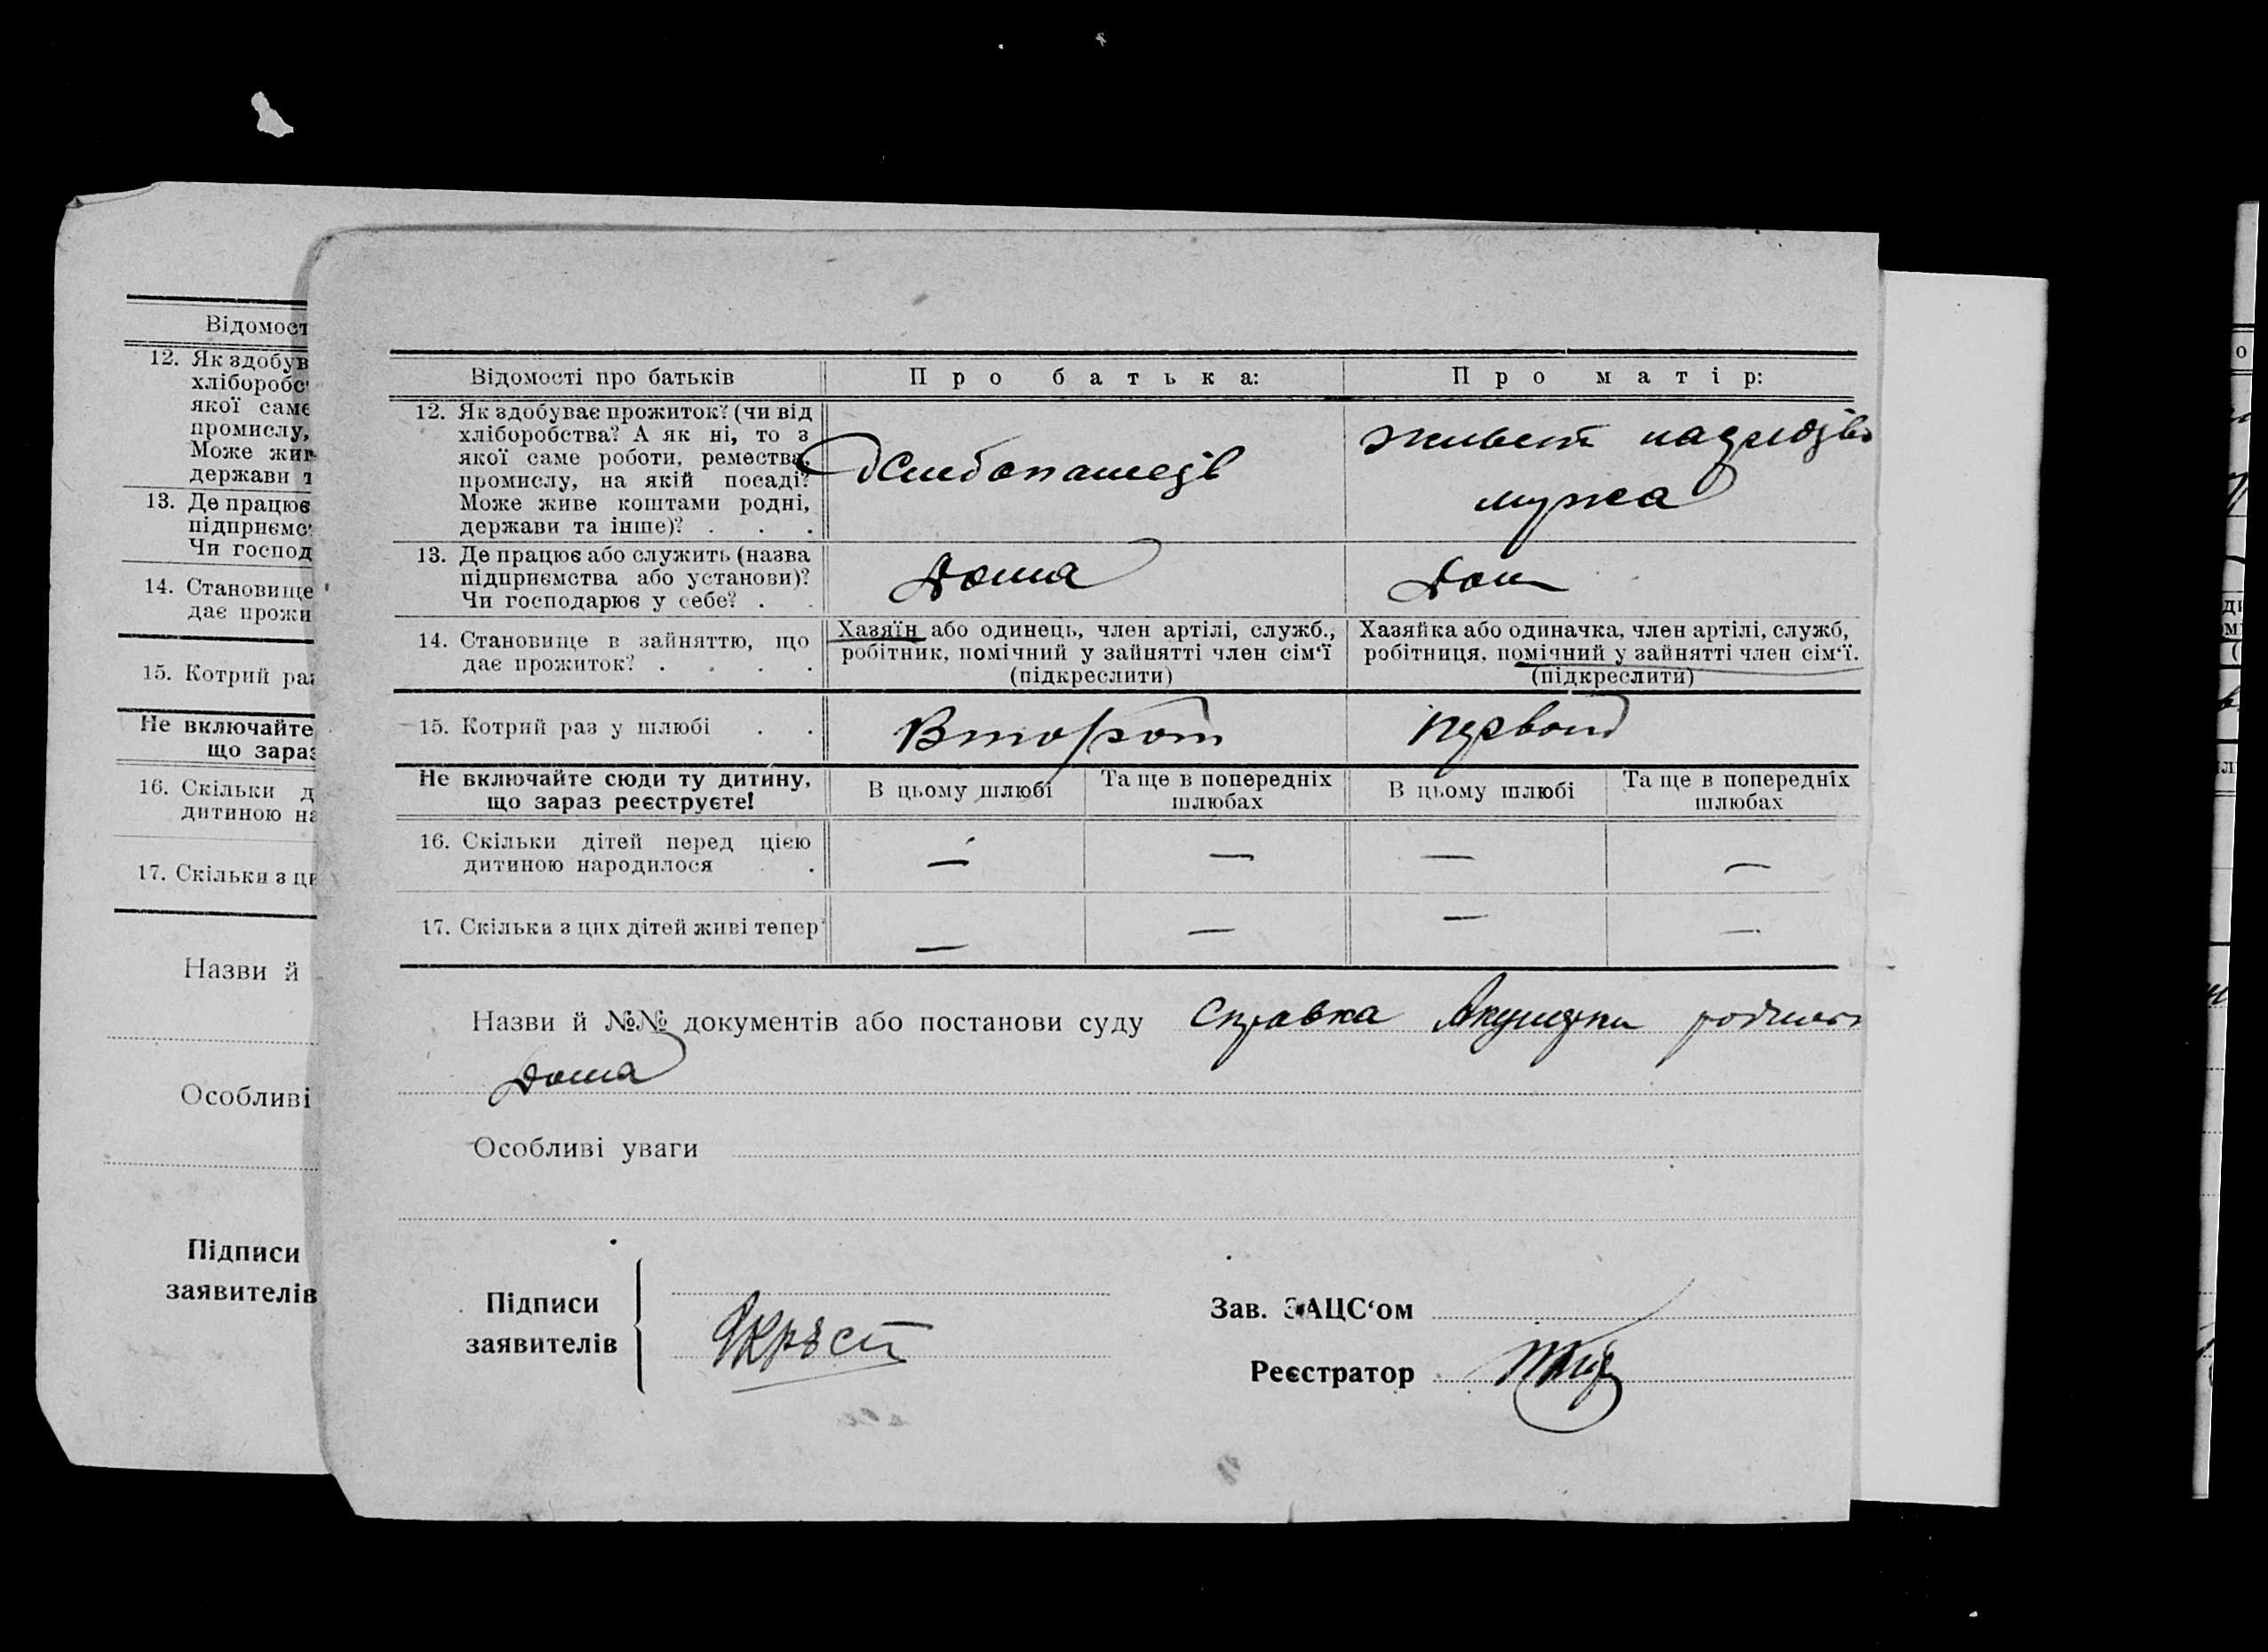 Відомост
12. Як здобув
хлібороб
якої саме
промислу,
Може жив
держави т
13. Де працює
підприємс
Чи господ
14. Становище
дає прожи
15. Котрий раз
Не включайте
що зараз
16. Скільки д
дитиною на
17. Скільки з ци
Назви й
Особливі
Підписи
заявителів
Відомості про батьків Про батька: Про матір:
12. Як здобуває прожиток? (чи від
хліборобства? А як ні, то з
якої саме роботи, ремества,
промислу, на якій посаді?
Може живе коштами родні,
держави та інше)? . . .
живет
мужа
13. Де працює або служить (назва
підприємства або установи)?
Чи господарює у себе? . .
Дома Дом
14. Становище в зайняттю, що
дає прожиток? . . . .
Хазяїн або одинець, член артілі, служб.,
робітник, помічний у зайнятті член сім‘ї
(підкреслити)
Хазяйка або одиначка, член артілі, служб,
робітниця, помічний у зайнятті член сім‘ї.
(підкреслити)
15. Котрий раз у шлюбі . . Второй первой
Не включайте сюди ту дитину,
що зараз реєструєте!
В цьому шлюбі Та ще в попередніх
шлюбах
В цьому шлюбі Та ще в попередніх
шлюбах
16. Скільки дітей перед цією
дитиною народилося . — — — —
17. Скільки з цих дітей живі тепер — — — —
Назви й №№ документів або постанови суду Справка Акушерки
Дома
Особливі уваги
Підписи
заявителів
Зав. ЗАЦС‘ом
Реєстратор